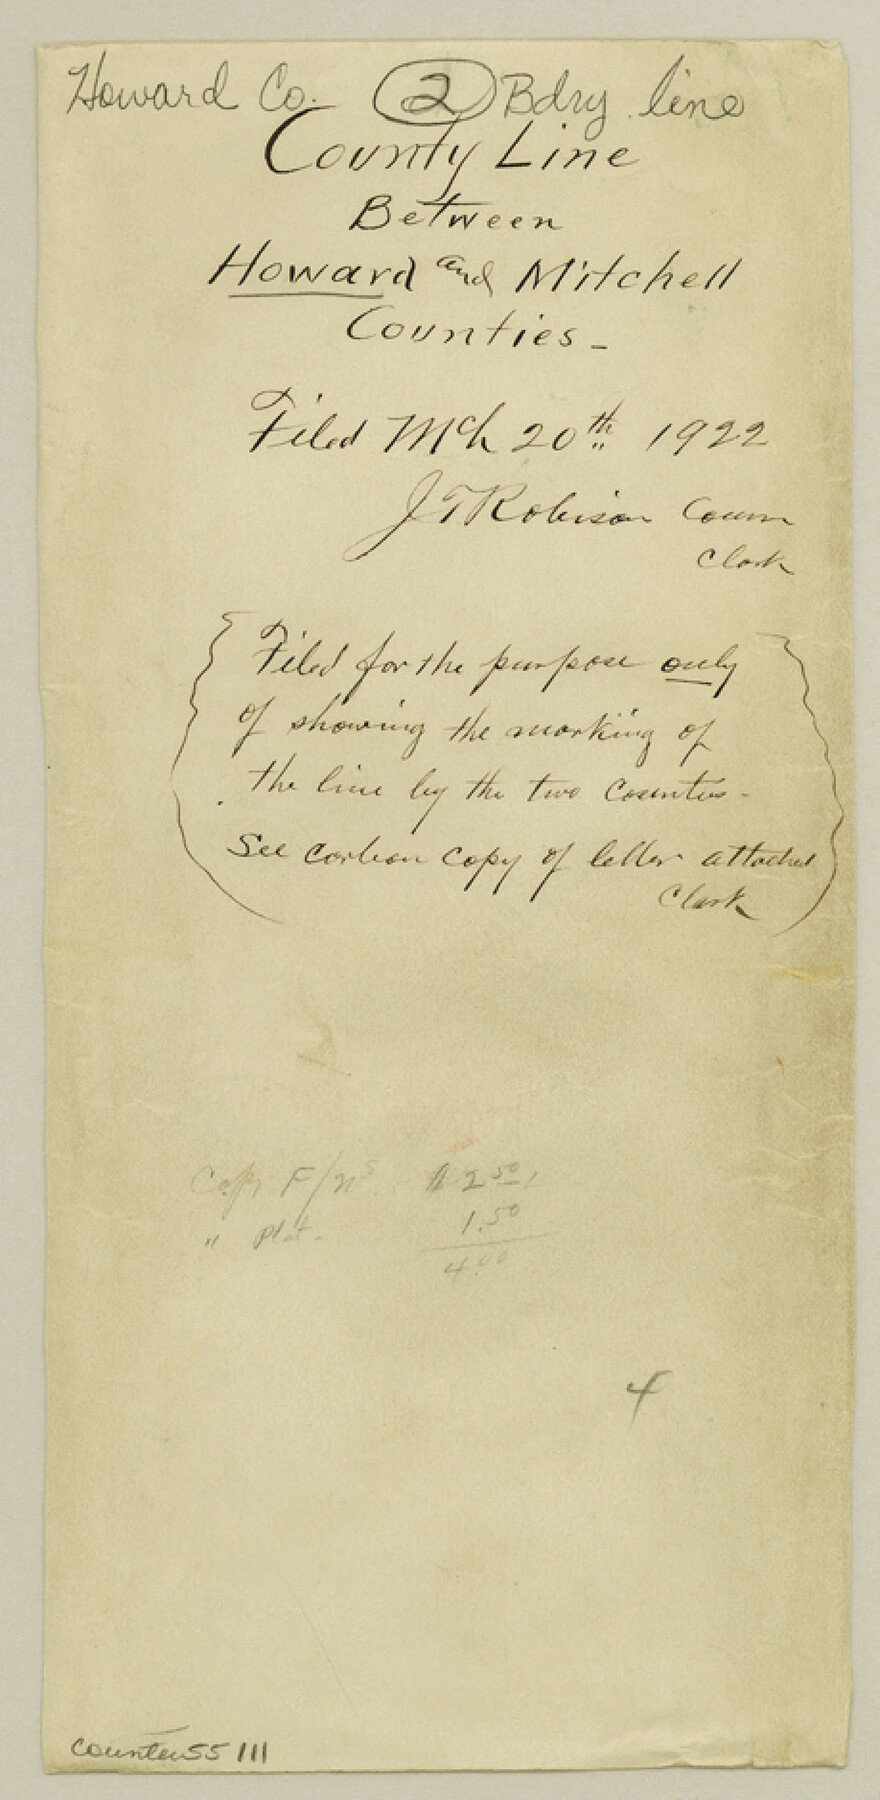 Howard Co. 2 Bdry line
County Line
Between
Howard and Mitchell
Counties -
Filed Mch 20th 1922
J T Robison Comr
Clark
Filed for the purpose only
of showing the marking of
the line by the two Counties -
See carbon copy of letter attached
Clark
Copy F/ns $2.50
" Plat - 1.50
4.00
4
counter 55111